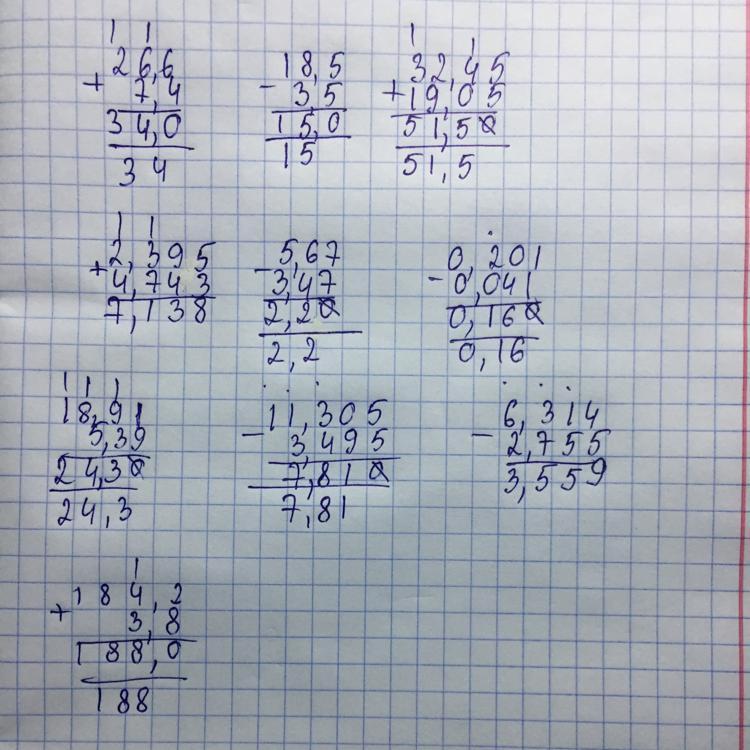 1 1
26,6
+ 7,4
34,0
34
18,5
- 3,5
15,0
15
1 1
32,45
+ 19,05
51,50
51,5
1 1
2,395
+ 4,743
7,138
5,67
- 3,47
2,20
2,2
0,201
- 0,041
0,160
0,16
1 1 1
18,91
5,39
24,30
24,3
11,305
- 3,495
7,810
7,81
6,314
- 2,755
3,559
1
184,2
+ 3,8
188,0
188